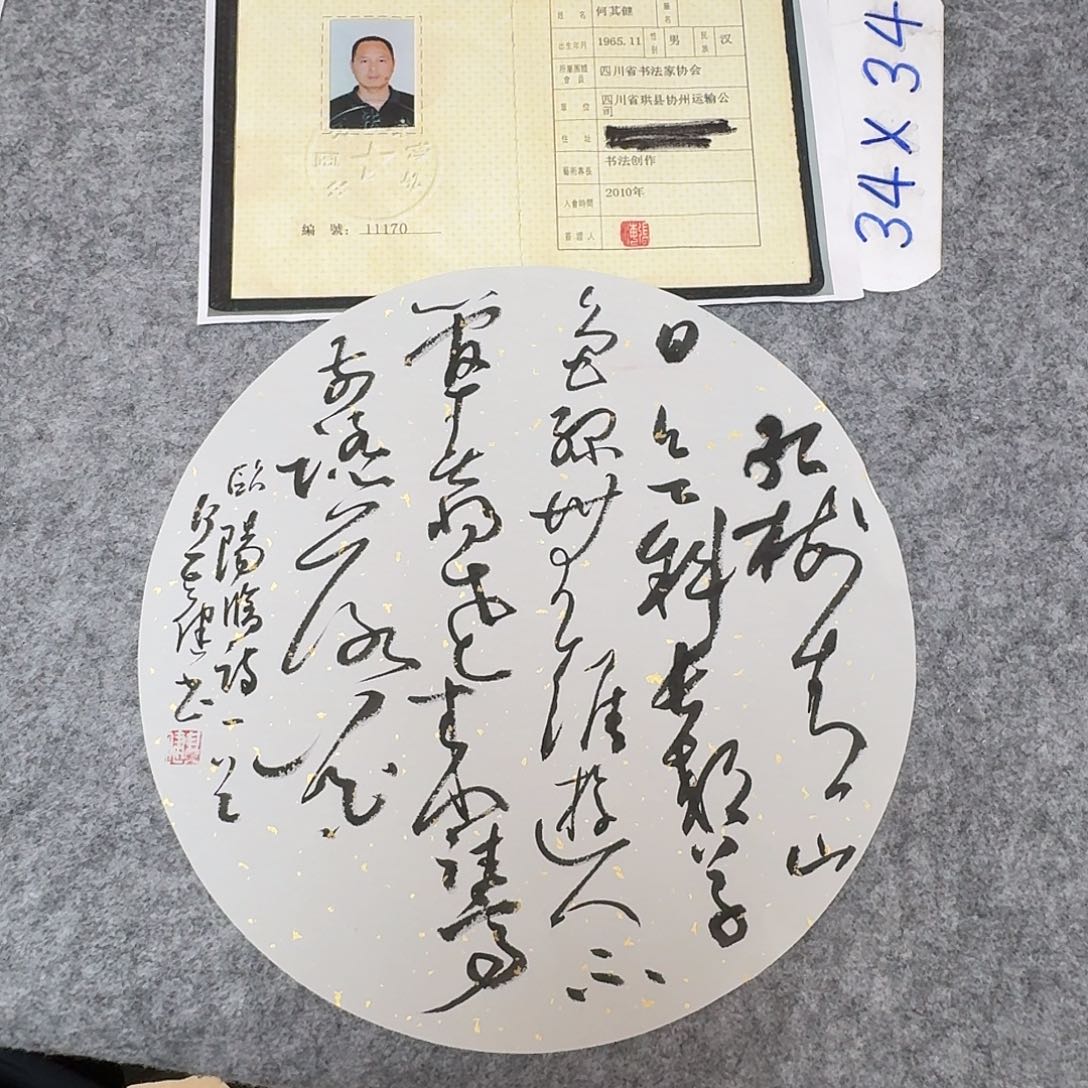 姓名 何其健
出生年月 1965.11 性别 男 民族 汉
四川省书法家协会
單位 四川省珙县协州运输公
司
住址
藝術專長 书法创作
入會時間 2010年
簽證人
編號：11170
34X34
红樹青山
日欲斜長郊草
色绿無涯遊人不
管春将老来往亭
前踏落花
欧陽脩詩一首
何其健书